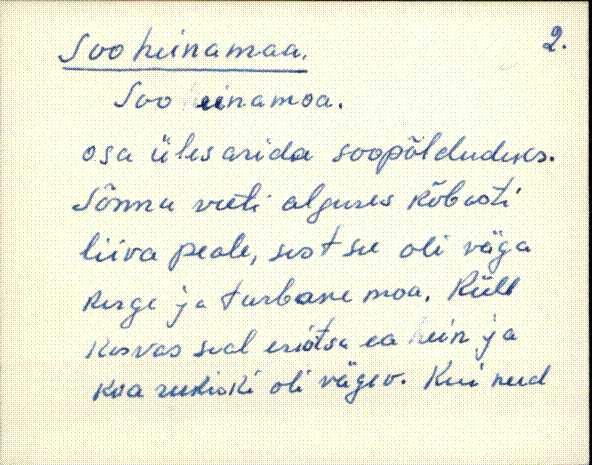 Soo heinamaa.
2.
Soo heinamoa.
osa üles arida soopõldudeks.
Sõnnu veeti alguses kõbasti
liiva peale, sest see oli väga
kerge ja turbane moa. Küll
kasvas seal eriotsa ea hein ja
koa rukiski oli vägev. Kui need